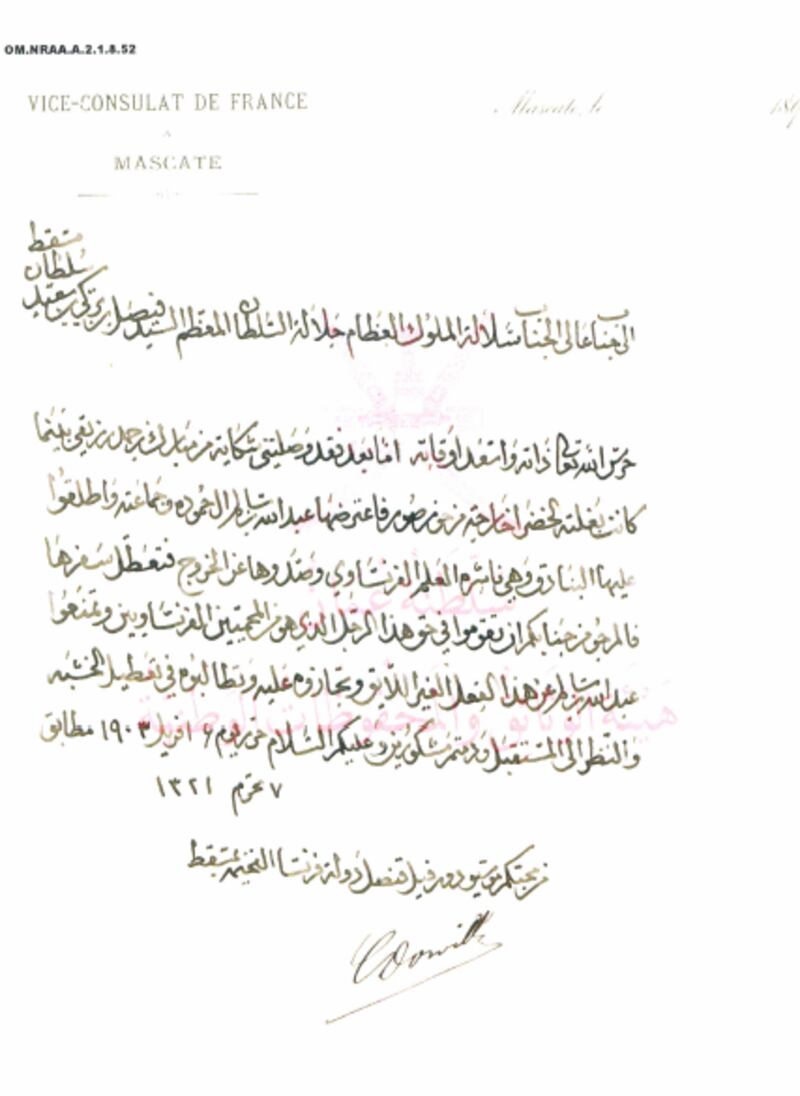 OM.NRAA.A.2.1.8.52
VICE-CONSULAT DE FRANCE
A
MASCATE
Mascate, le 189
الى جناب عالى الجناب سلالة الملوك العظام جلالة السلطان المعظم السيد فيصل بن تركي بن سعيد
سلطان
مسقط
حرس الله تعالى ذاته واسعد اوقاته امّا بعد فقد وصلتني شكاية من مبارك بن حمد بن يقي بينما
كانت بغلته الخضرا خارجة من خور صور فاعترضها عبدالله بن سالم ال حموده وجماعته واطلقوا
عليها البنادق وهي ناشره العلم الفرنساوي وصدّوها عن الخروج فتعطّل سفرها
فالمرجو من جنابكم ان تقوموا في حق هذا الرجل الذي هو من المحميّين الفرنساويين وتمنعوا
عبدالله بن سالم عن هذا الفعل الغير اللائق وتجازوه عليه وتطالبوه في تعطيل الخشبه
والنظر الى المستقبل ودمتم مشكورين وعليكم السلام حرر يوم ٦ افريل ١٩٠٣ مطابق
٧ محرم ١٣٢١
من محبتكم موسيو دورفيل قنصل دولة فرنسا الفخيمه بمسقط
سلطنة عمان
هيئة الوثائق والمحفوظات الوطنية